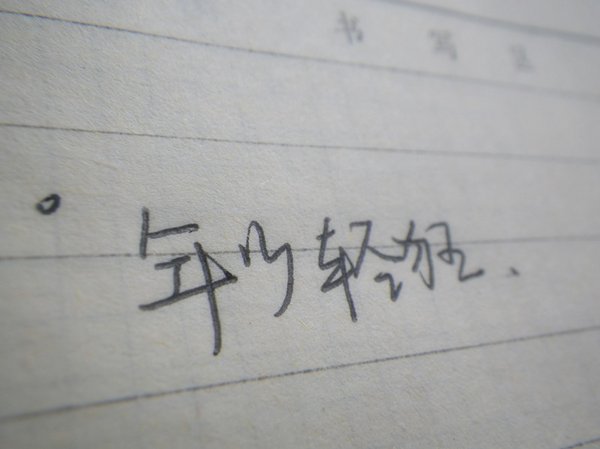 书写
年少轻狂.